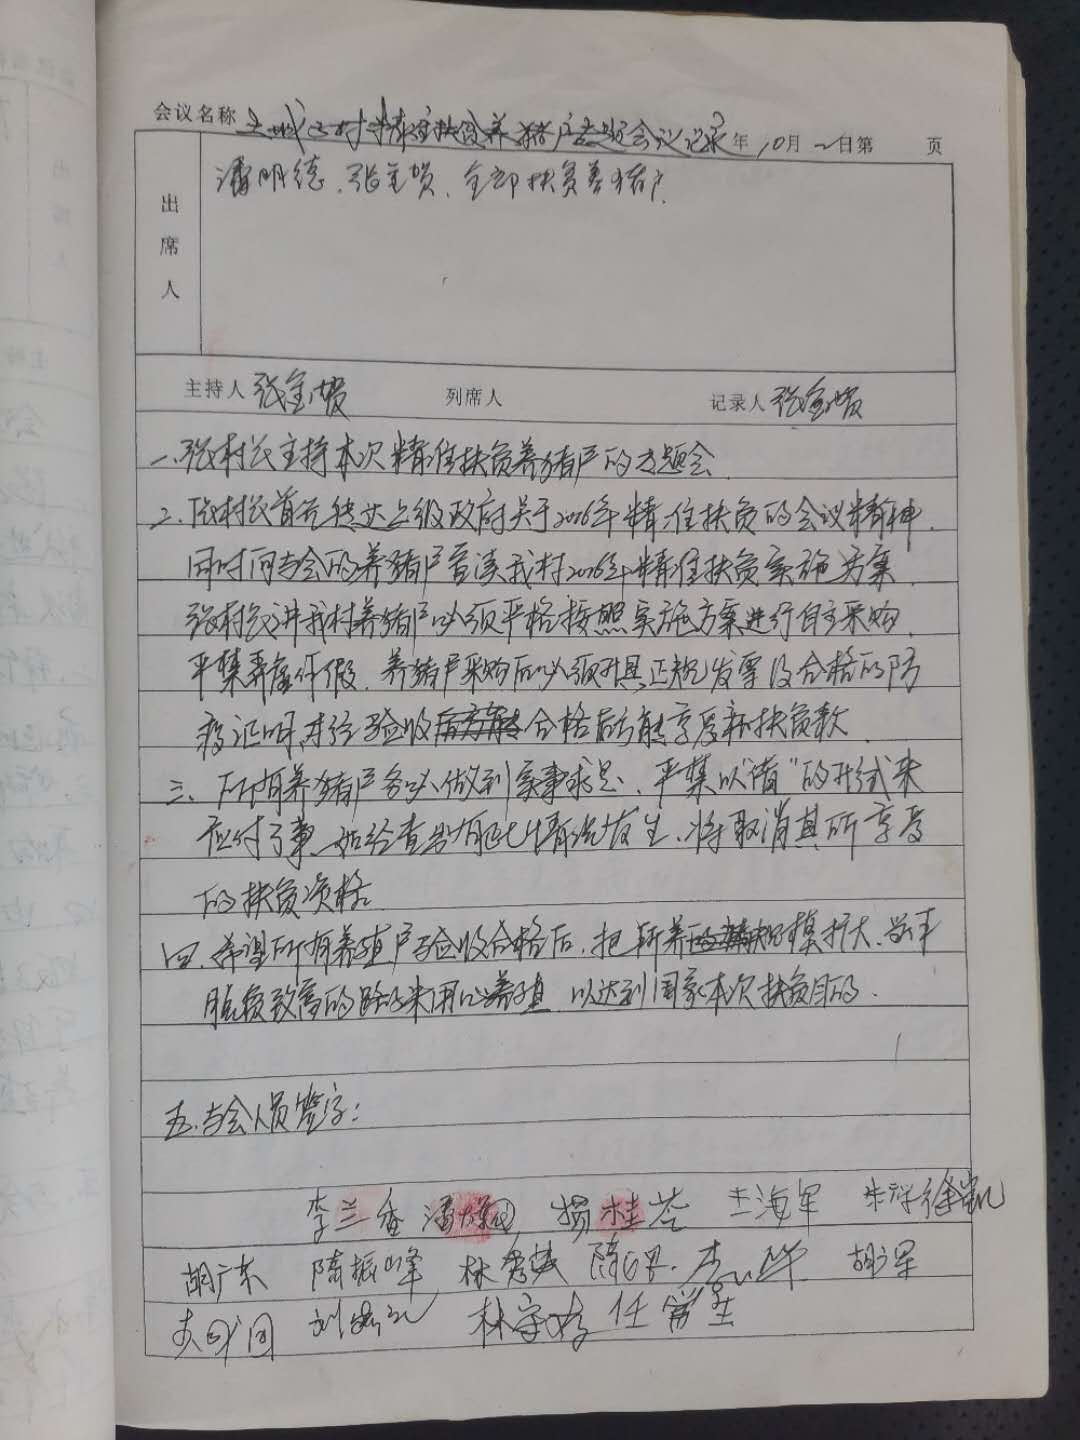 会议名称 村精准扶贫养猪户专题会议记录 年 10月 2日第 页
出席人
潘明德、张金贺、全部扶贫养猪户
主持人 张金贺 列席人 记录人 张金贺
一、张村长主持本次精准扶贫养猪户的专题会
二、张村长首先转达上级政府关于2016年精准扶贫的会议精神、
同时向与会的养猪户宣读我村2016年精准扶贫实施方案、
张村长讲我村养猪户必须严格按照实施方案进行自主采购、
严禁弄虚作假、养猪户采购后必须开具正规发票及合格的防
疫证明、才经验收合格后方能享受到扶贫款
三、所有养猪户务必做到实事求是、严禁以“借”的形式来
应付了事、如经查出有此情况发生、将取消其所享受
的扶贫资格
四、希望所有养殖户验收合格后、把所养的规模扩大、当半
脱贫致富的路子来用心养殖、以达到国家本次扶贫目的、
五、与会人员签字:
李兰香 潘 杨桂苓 王海军 朱 徐凯
胡广东 陈振峰 林秀英 李 胡军
刘 林 任